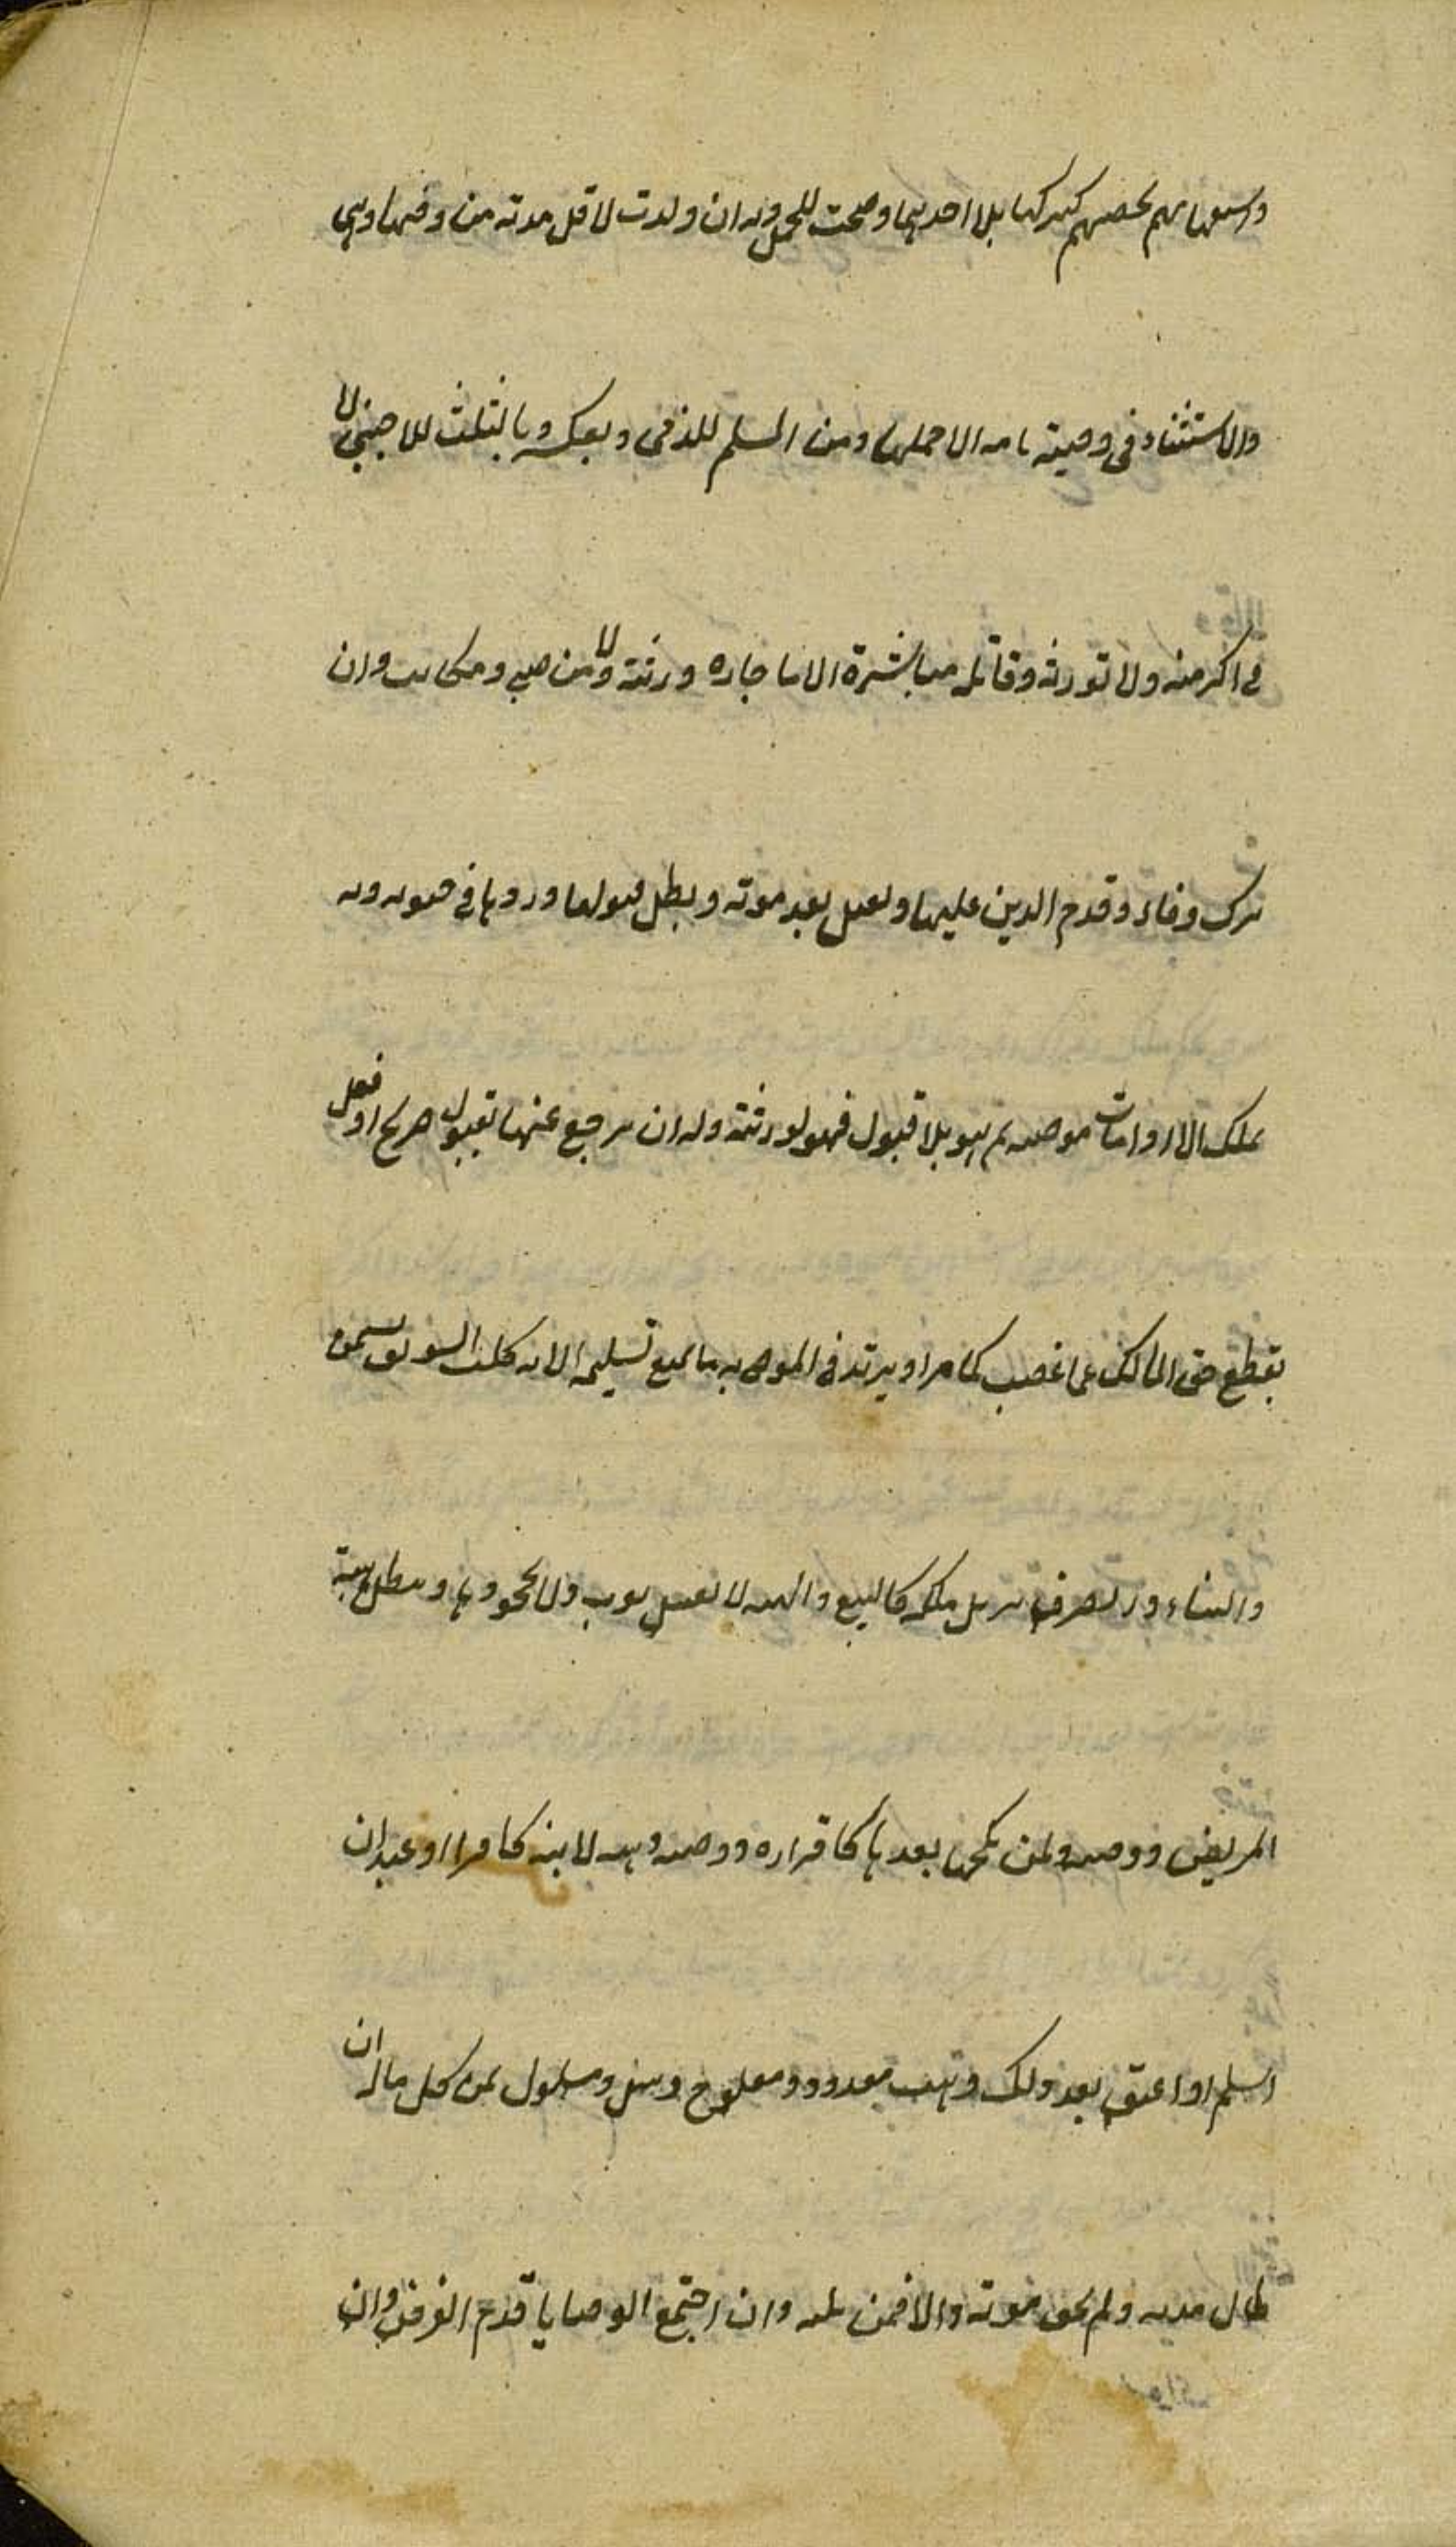 واستغنائهم بحصتهم كتركها بلا احديهما وصحت للحمل وبه ان ولدت لاقل مدته من وقتها وهي
والاستثناء في وصيته بامه الا حملها ومن المسلم للذمي وبعكسه وبالثلث للاجنبي لا
في اكثر منه ولا لوارثه وقاتله مباشرة الا باجازة ورثته ولا من صبي ومكاتب وان
ترك وفاء وقدم الدين عليها وتقبل بعد موته وبطل قبولها وردها في حيوته وبه
تملك الا اذا مات موصيه ثم هو بلا قبول فهو لورثته وله ان يرجع عنها بقول صريح او فعل
يقطع حق المالك عما غصب كما مر او يزيد في الموصى به ما يمنع تسليمه الا به كلت السويق بسمن
والبناء وتصرف يزيل ملكه كالبيع والهبة لا بغسل ثوب ولا بجحودها وتبطل هبة
المريض ووصيته لمن نكحها بعدها كاقراره ووصيته وهبته لابنه كافرا او عبدا ان
اسلم او اعتق بعد ذلك وهب مقعد ومفلوج واشل ومسلول من كل ماله ان
طال مدته ولم يخف موته والا فمن ثلثه وان اجتمع الوصايا قدم الفرض وان